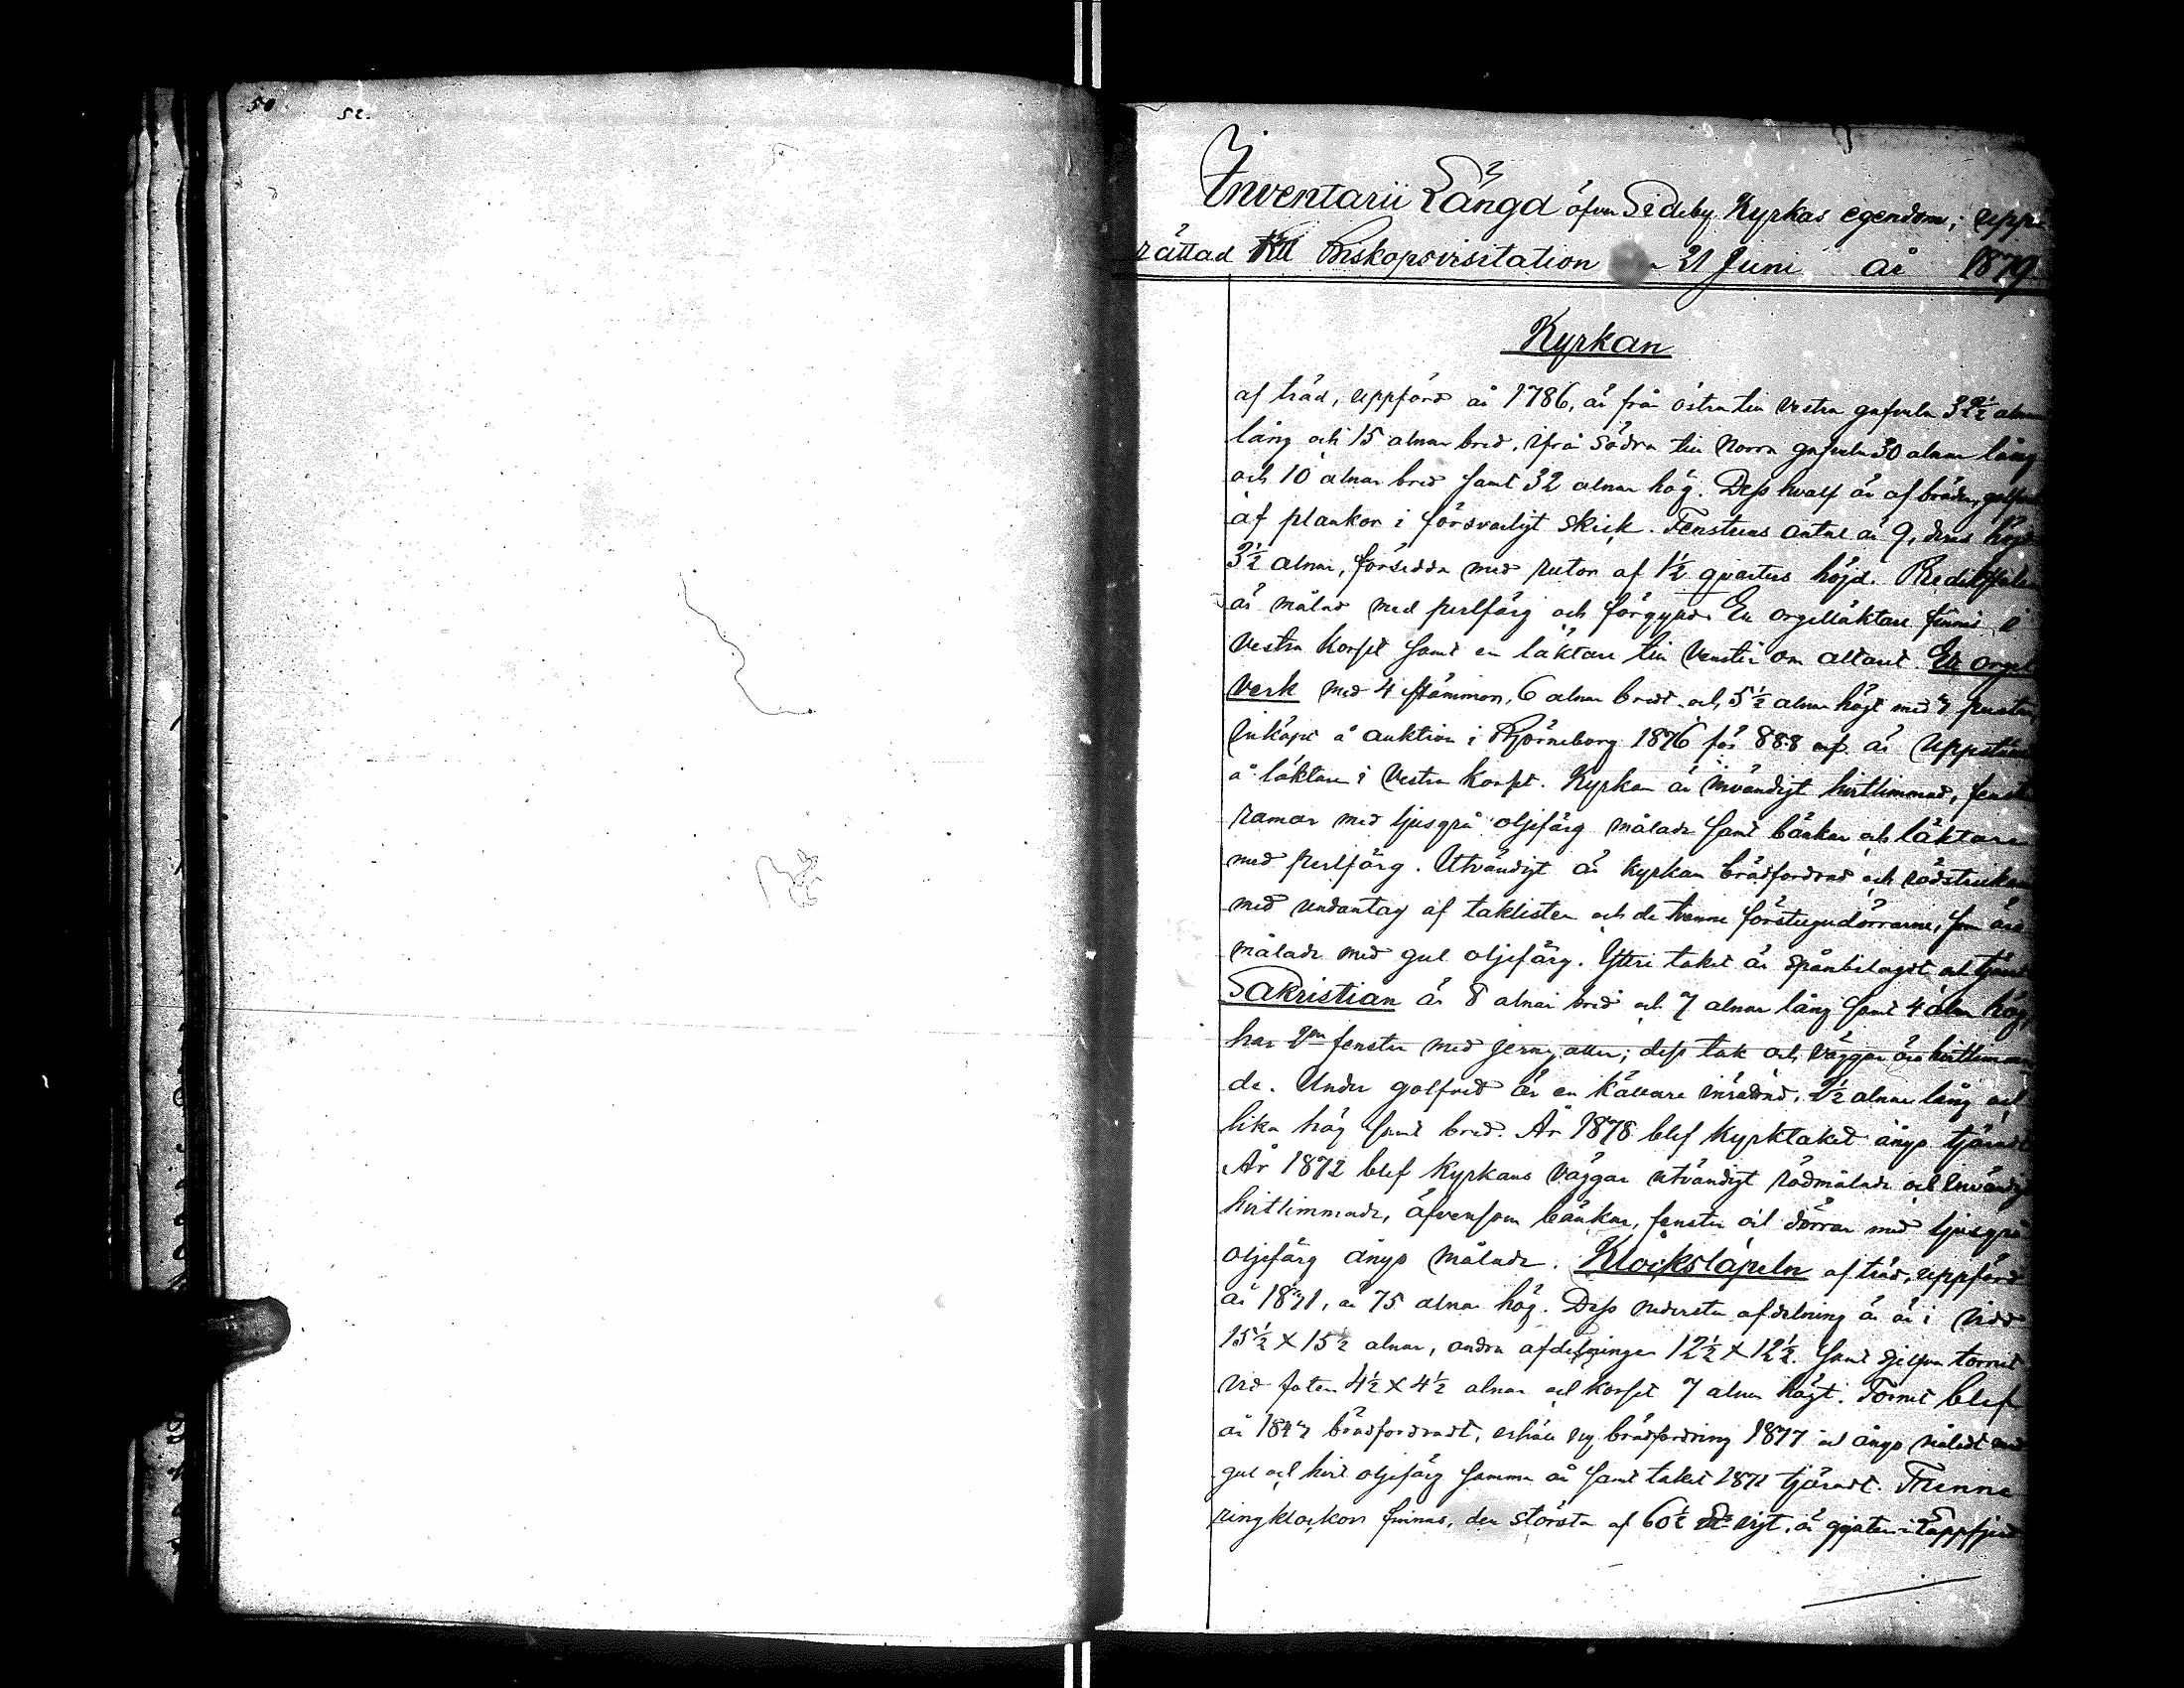 50
52.
Inventarii Längd öfver Sideby Kyrkas egendom; upp-
rättad till Biskopsvisitation 21 Juni år 1879
Kyrkan
af träd, uppförd år 1786, är från östra till vestra gafveln 32½ alnar
lång och 15 alnar bred, ifrån södra till norra gafveln 30 alnar lång
och 10 alnar bred samt 32 alnar hög. Dess hvalf är af bräder, golfvet
af plankor i försvarligt skick. Fenstrens antal är 9, deras höjd
3½ alnar, försedda med rutor af 1½ qvarters höjd. Predikstolen
är målad med perlfärg och förgyld. En orgelläktare finnes i
vestra korset samt en läktare till venster om altaret. Ett orgel
verk med 4 stämmor, 6 alnar bredt och 5½ alnar högt med
inköpt å auktion i Björneborg 1876 för 888 mf är uppstäldt
å läktaren i vestra korset. Kyrkan är invändigt hvitlimmad, fenster
ramar med ljusgrå oljefärg målade samt bänkar och läktaren
med perlfärg. Utvändigt är kyrkan brädfordrad och rödstruken
med undantag af taklisten och de tvenne förstugudörrarne, som äro
målade med gul oljefärg. Yttre taket är spånbelagdt och tjäradt
Sakristian är 8 alnar bred och 7 alnar lång samt 4 alnar hög,
har 2ne fenster med jerngaller; dess tak och väggar äro hvitlimma
de. Under golfvet är en källare inrättad, 2½ alnar lång och
lika hög samt bred. År 1878 blef kyrktaket ånyo tjäradt
År 1872 blef kyrkans väggar utvändigt rödmålade och invändigt
hvitlimmade, äfvensom bänkar, fenster och dörrar med ljusgrå
oljefärg ånyo målade. Klockstapeln af träd, uppförd
år 18 1, är 75 alnar hög. Dess nedersta afdelning är i vidd
15½ X 15½ alnar, andra afdelningen 12½ X 12½ samt sjelfva tornet
vid foten 4½ X 4½ alnar och korset 7 alnar högt. Tornet blef
år 1847 brädfordradt, erhöll ny brädfordring 1877 och ånyo måladt med
gul och hvit oljefärg samma år samt taket 1871 tjäradt. Trenne
ringklockor finnas, den största af 60½ vigt, är gjuten i Lappfjerd